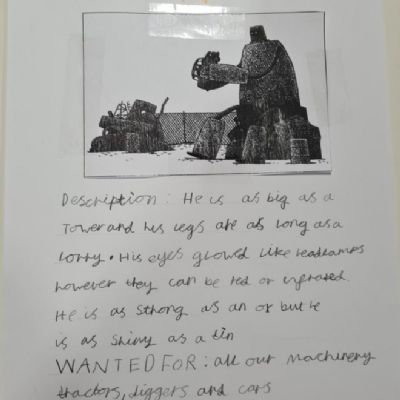 Description: He is as big as a
Tower and his legs are as long as a
lorry. His eyes glowed like headlamps
however they can be red or infrared.
He is as strong as an ox but he
is as shiny as a tin
WANTED FOR: all our machinery
tractors, diggers and cars